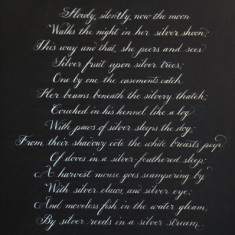 Slowly, silently, now the moon
Walks the night in her silver shoon;
This way and that, she peers and sees
Silver fruit upon silver trees;
One by one the casements catch
Her beams beneath the silvery thatch;
Couched in his kennel like a log
With paws of silver sleeps the dog;
From their shadowy cote the white breasts peep
Of doves in a silver-feathered sleep;
A harvest mouse goes scampering by
With silver claws and silver eye;
And moveless fish in the water gleam,
By silver reeds in a silver stream.